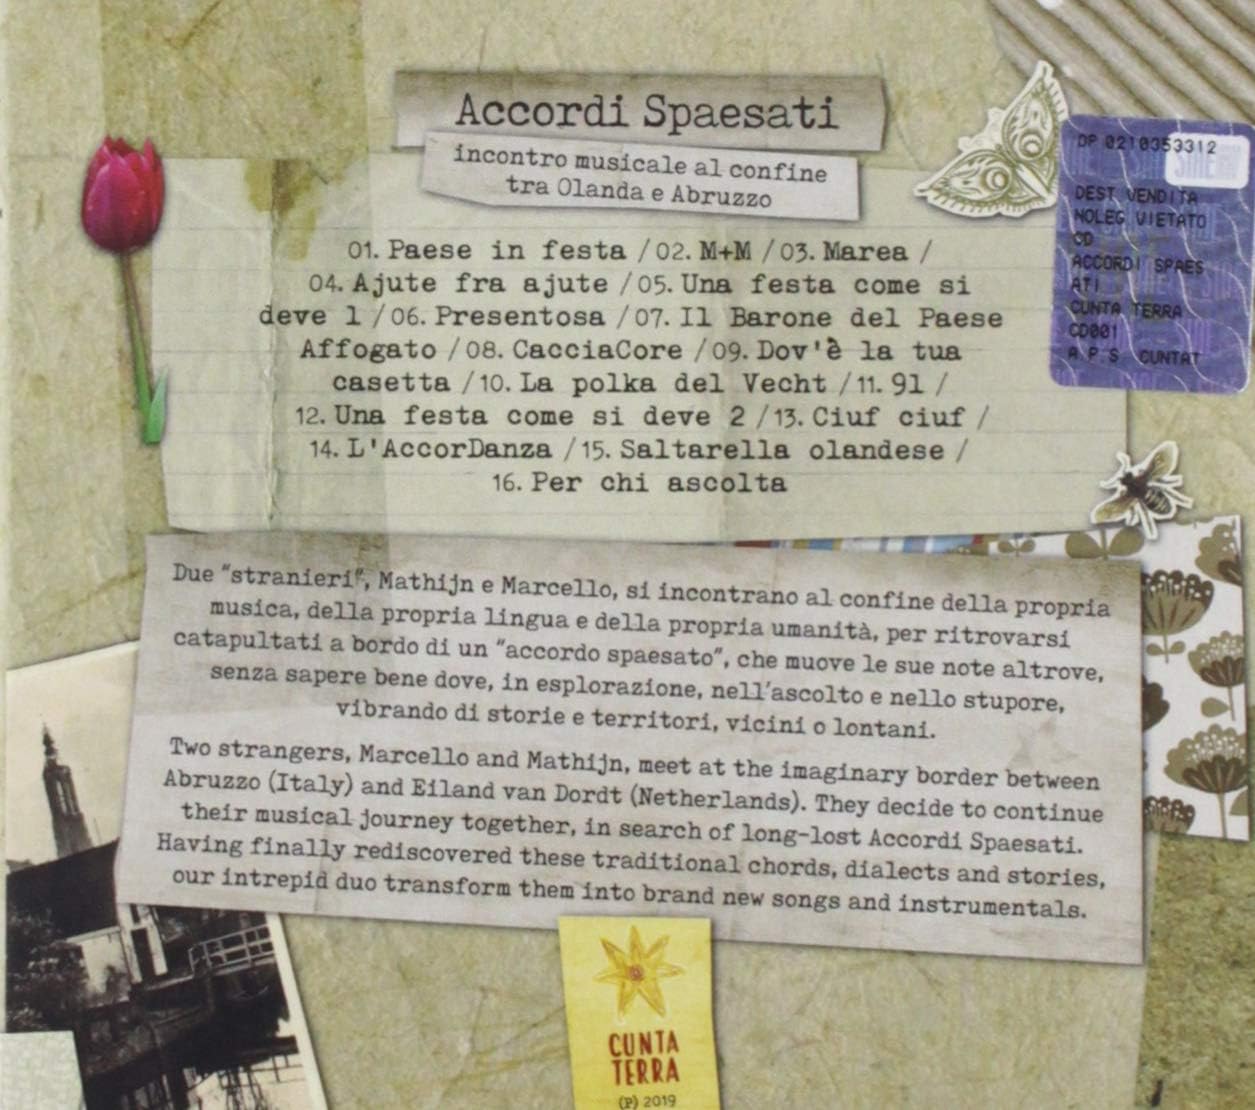 Accordi Spaesati
incontro musicale al confine
tra Olanda e Abruzzo
01. Paese in festa / 02. M+M / 03. Marea /
04. Ajute fra ajute / 05. Una festa come si
deve 1 / 06. Presentosa / 07. Il Barone del Paese
Affogato / 08. CacciaCore / 09. Dov'è la tua
casetta / 10. La polka del Vecht / 11. 91 /
12. Una festa come si deve 2 / 13. Ciuf ciuf /
14. L'AccorDanza / 15. Saltarella olandese /
16. Per chi ascolta
DP 0210353312
DEST VENDITA
NOLEG VIETATO
CD
ACCORDI SPAES
ATI
CUNTA TERRA
CD001
A P S CUNTAT
Due "stranieri", Mathijn e Marcello, si incontrano al confine della propria
musica, della propria lingua e della propria umanità, per ritrovarsi
catapultati a bordo di un "accordo spaesato", che muove le sue note altrove,
senza sapere bene dove, in esplorazione, nell'ascolto e nello stupore,
vibrando di storie e territori, vicini o lontani.
Two strangers, Marcello and Mathijn, meet at the imaginary border between
Abruzzo (Italy) and Eiland van Dordt (Netherlands). They decide to continue
their musical journey together, in search of long-lost Accordi Spaesati.
Having finally rediscovered these traditional chords, dialects and stories,
our intrepid duo transform them into brand new songs and instrumentals.
CUNTA
TERRA
(P) 2019